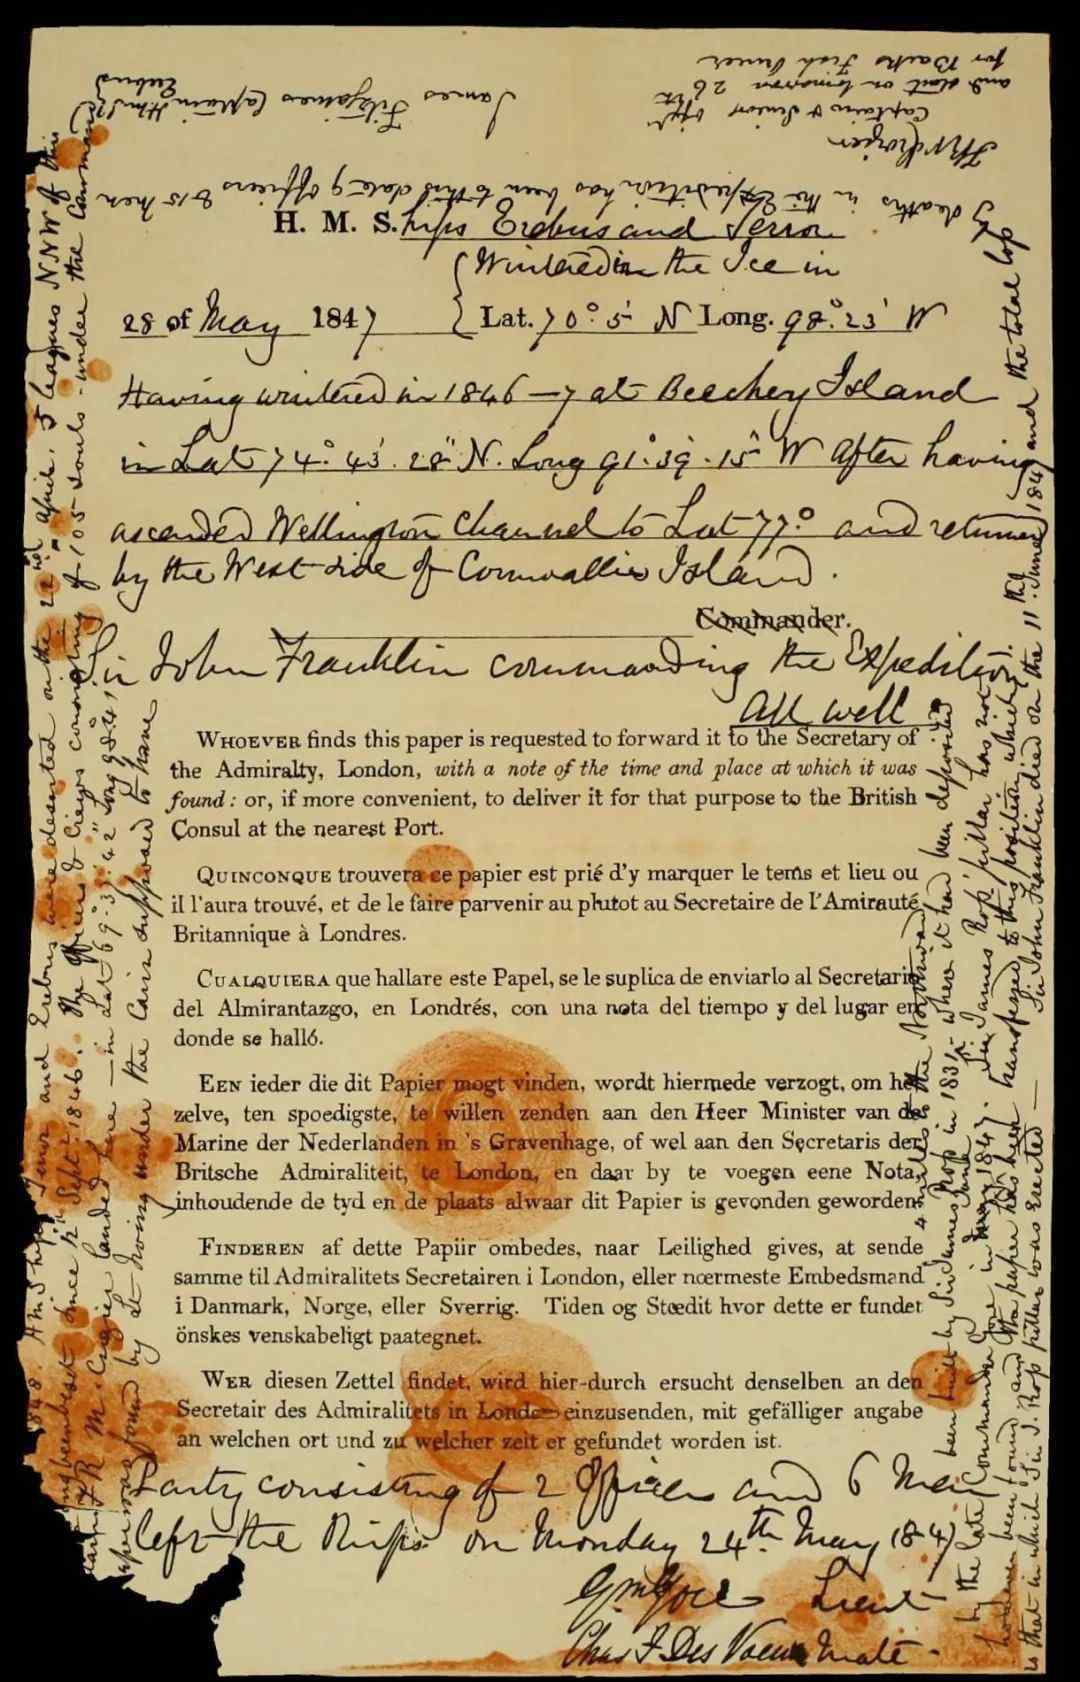 H. M. S.hips Erebus and Terror
Wintered in the Ice in
28 of May 1847 Lat. 70° 5' N Long. 98°. 23' W
Having wintered in 1846–7 at Beechey Island
in Lat 74°. 43'. 28" N. Long 91°. 39'. 15" W After having
ascended Wellington Channel to Lat 77° and returned
by the West side of Cornwallis Island.
Commander.
Sir John Franklin commanding the Expedition.
All well
WHOEVER finds this paper is requested to forward it to the Secretary of
the Admiralty, London, with a note of the time and place at which it was
found: or, if more convenient, to deliver it for that purpose to the British
Consul at the nearest Port.
QUINCONQUE trouvera ce papier est prié d'y marquer le tems et lieu ou
il l'aura trouvé, et de le faire parvenir au plutot au Secretaire de l'Amirauté
Britannique à Londres.
CUALQUIERA que hallare este Papel, se le suplica de enviarlo al Secretario
del Almirantazgo, en Londrés, con una nota del tiempo y del lugar en
donde se halló.
EEN ieder die dit Papier mogt vinden, wordt hiermede verzogt, om het
zelve, ten spoedigste, te willen zenden aan den Heer Minister van de
Marine der Nederlanden in 's Gravenhage, of wel aan den Secretaris der
Britsche Admiraliteit, te London, en daar by te voegen eene Nota,
inhoudende de tyd en de plaats alwaar dit Papier is gevonden geworden.
FINDEREN af dette Papiir ombedes, naar Leilighed gives, at sende
samme til Admiralitets Secretairen i London, eller nœrmeste Embedsmand
i Danmark, Norge, eller Sverrig. Tiden og Stœdit hvor dette er fundet
önskes venskabeligt paategnet.
WER diesen Zettel findet, wird hier-durch ersucht denselben an den
Secretair des Admiralitets in London einzusenden, mit gefälliger angabe
an welchen ort und zu welcher zeit er gefundet worden ist.
Party consisting of 2 Officers and 6 Men
left the Ships on Monday 24th. May 1847
Gm Gore Lieut
Chas F Des Voeux Mate
1848. HM Ships Terror and Erebus were deserted on the 22nd April, 5 leagues NNW of this
having been beset since 12th Septr. 1846. The Officers & Crews consisting of 105 souls – under the Command
F.R.M. Crozier landed here – in Lat 69°. 37'. 42" Long 98°. 41'
paper was found by Lt Irving under the Cairn supposed to have
been built by Sir James Ross in 1831 – where it had been deposited
4 miles to the Northward
by the late Commander Gore in May June 1847. Sir James Ross' pillar has not
however been found and the paper has been transferred to this position which
is that in which Sir J. Ross pillar was erected – Sir John Franklin died on the 11th June 1847 and the total loss
by deaths in the Expedition has been to this date 9 officers & 15 men
James Fitzjames Captain HMS Erebus
FRM Crozier
Captain & Senior Offr
and start on tomorrow 26th
for Backs Fish River